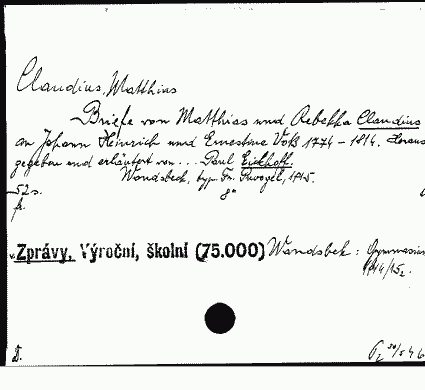 Claudius, Matthias
Briefe von Matthias und Rebekka Claudius
an Johann Heinrich und Ernestine Voß 1774-1814. Heraus
gegeben und erläutert von... Paul Eickhoff.
Wandsbeck, typ. Fr. Puvogel, 1915.
52 s. 8°
v. Zprávy, Výroční, školní (75.000) Wandsbek: Gymnasium
1914/15.